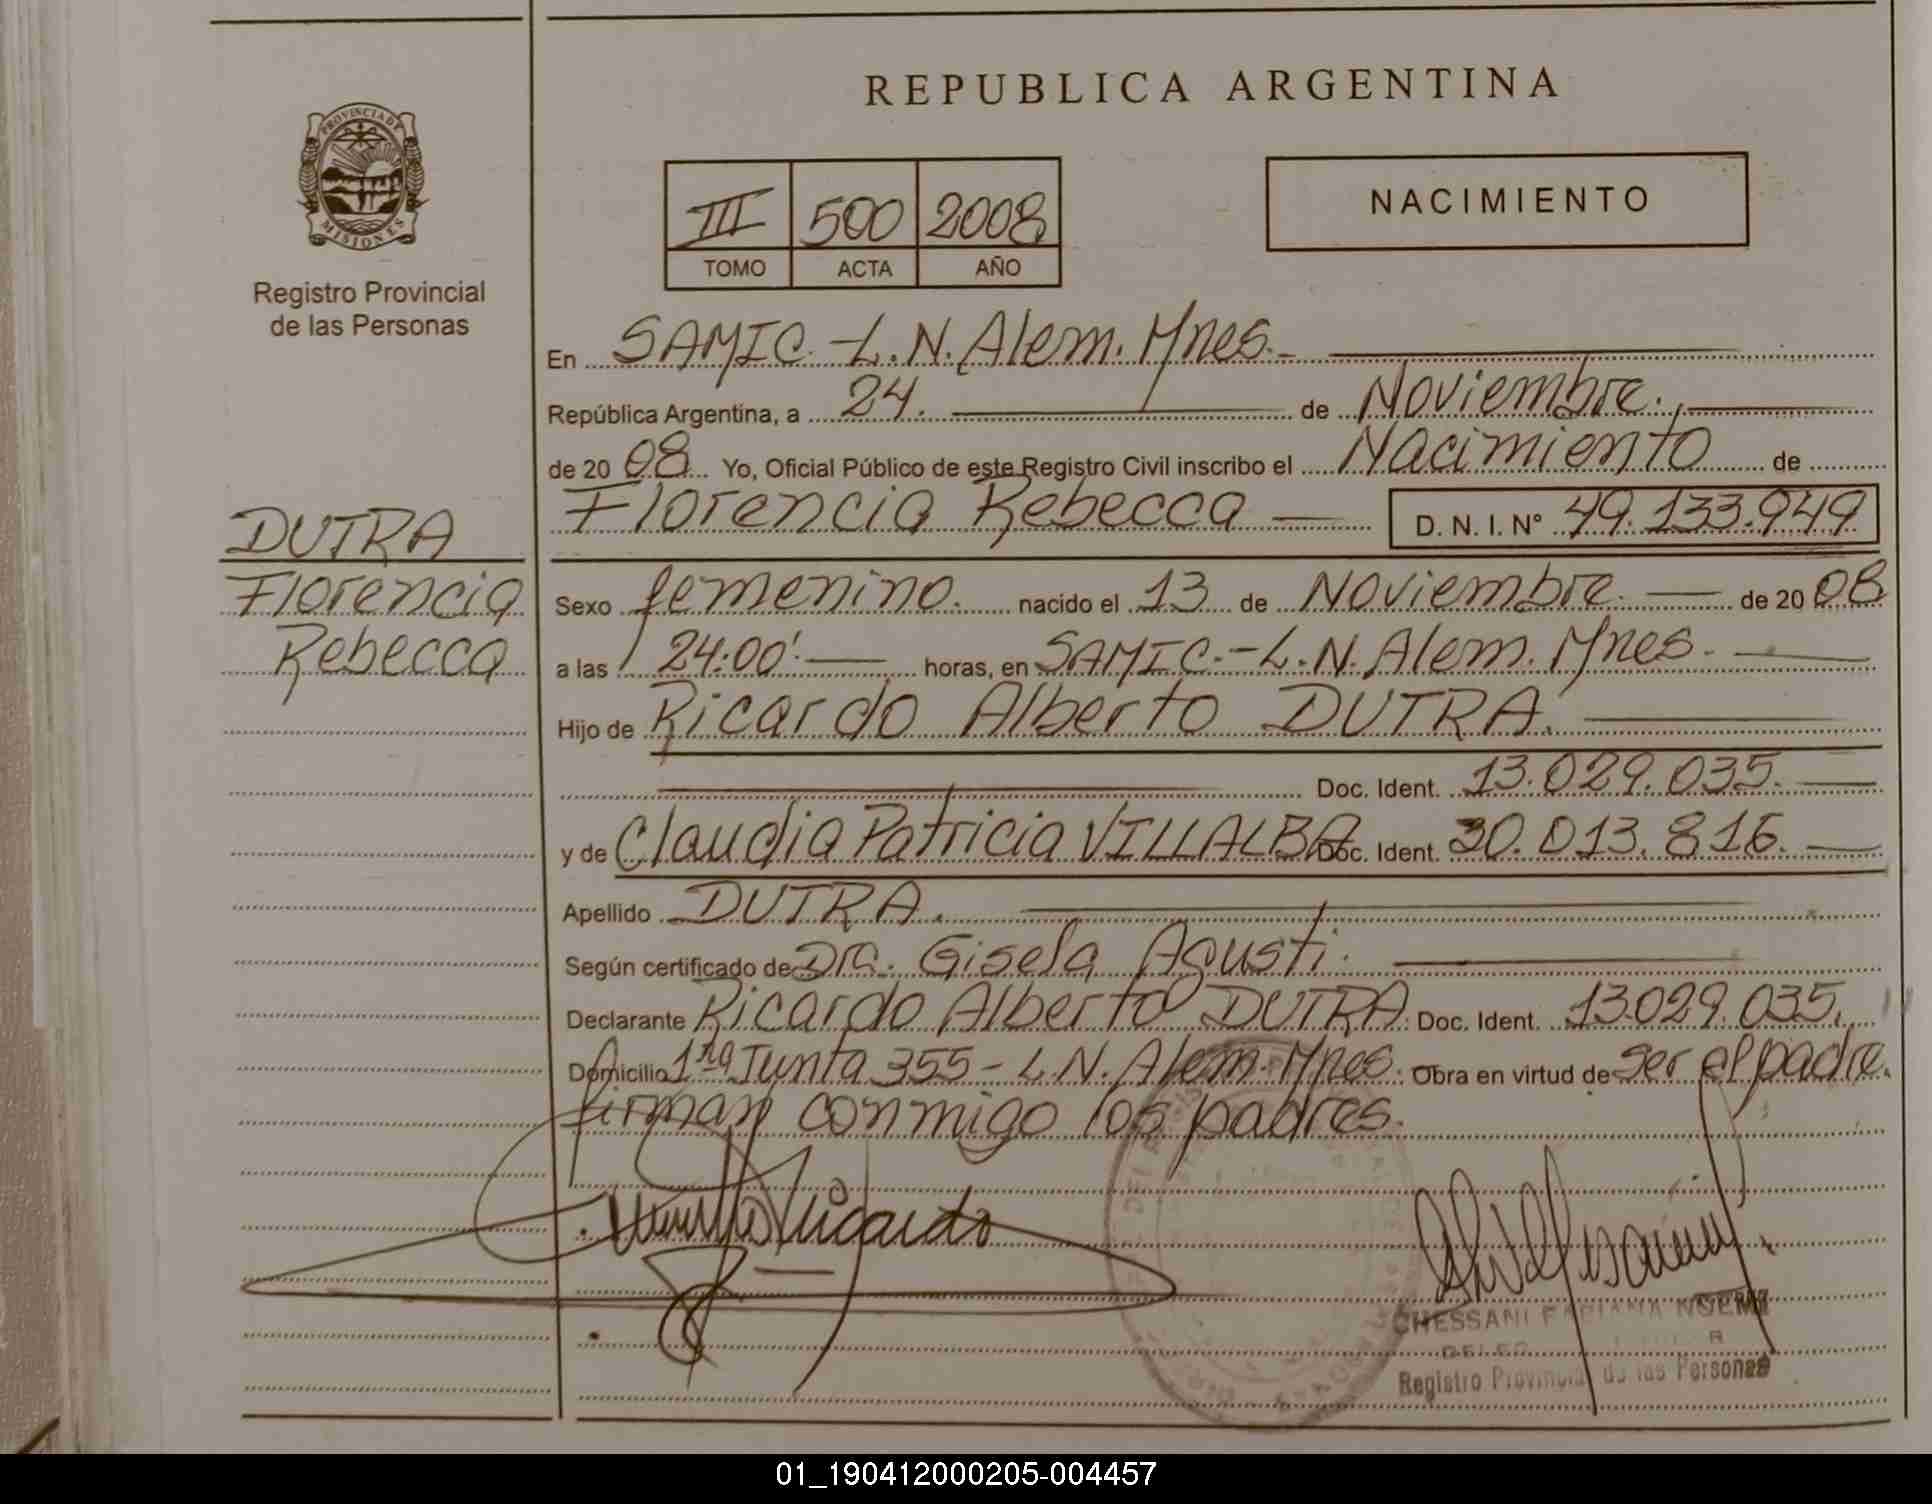 REPUBLICA ARGENTINA
PROVINCIA DE
MISIONES
Registro Provincial
de las Personas
III 500 2008
TOMO ACTA AÑO
NACIMIENTO
En SAMIC.-L.N. Alem. Mnes.-
República Argentina, a 24. de Noviembre.
de 20 08 Yo, Oficial Público de este Registro Civil inscribo el Nacimiento de
Florencia Rebecca D. N. I. Nº 49.133.949
DUTRA
Florencia
Rebecca
Sexo femenino. nacido el 13 de Noviembre. de 20 08
a las 24:00'. horas, en SAMIC.-L.N. Alem. Mnes.
Hijo de Ricardo Alberto DUTRA.
Doc. Ident. 13.029.035.
y de Claudia Patricia VILLALBA Doc. Ident. 30.013.816.
Apellido DUTRA.
Según certificado de Dra. Gisela Agusti.
Declarante Ricardo Alberto DUTRA. Doc. Ident. 13.029.035.
Domicilio 1ra Junta 355 - L.N. Alem. Mnes. Obra en virtud de ser el padre.
firman conmigo los padres.
Ricardo
CHESSANI FABIANA NOEMI
Registro Provincial de las Personas
01_190412000205-004457